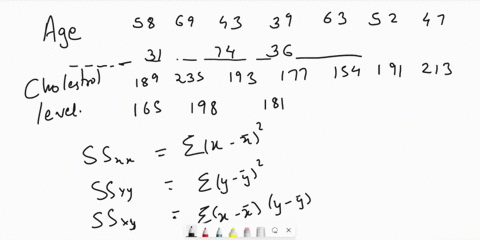 Age 58 69 43 39 63 52 47
31 74 36
Cholestrol 189 235 193 177 154 191 213
level. 165 198 181
SSxx = Σ(x - x̄)²
SSyy = Σ(y - ȳ)²
SSxy = Σ(x - x̄)(y - ȳ)